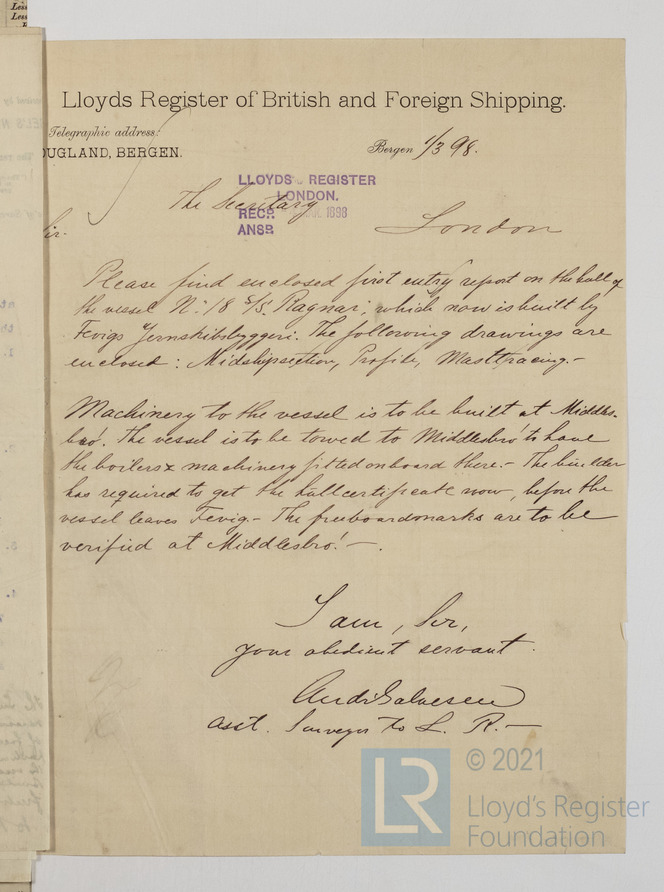 Lloyds Register of British and Foreign Shipping.
Telegraphic address:
OUGLAND, BERGEN.
Bergen 1/3 98.
LLOYDS REGISTER
LONDON.
RECD 1898
ANSD
The Secretary
London
Sir.
Please find enclosed first entry report on the hull of
the vessel No. 18 S/S. Ragnar, which now is built by
Fevigs Jernskibsbyggeri. The following drawings are
enclosed: Midshipsection, Profile, Masttracing.-
Machinery to the vessel is to be built at Middles-
bro'. The vessel is to be towed to Middlesbro' to have
the boilers & machinery fitted onboard there.- The builder
has required to get the hull certificate now, before the
vessel leaves Fevig.- The freeboardmarks are to be
verified at Middlesbro'.-
I am, Sir,
your obedient servant.
asst. Surveyor to L. R.-
LR
© 2021
Lloyd's Register
Foundation